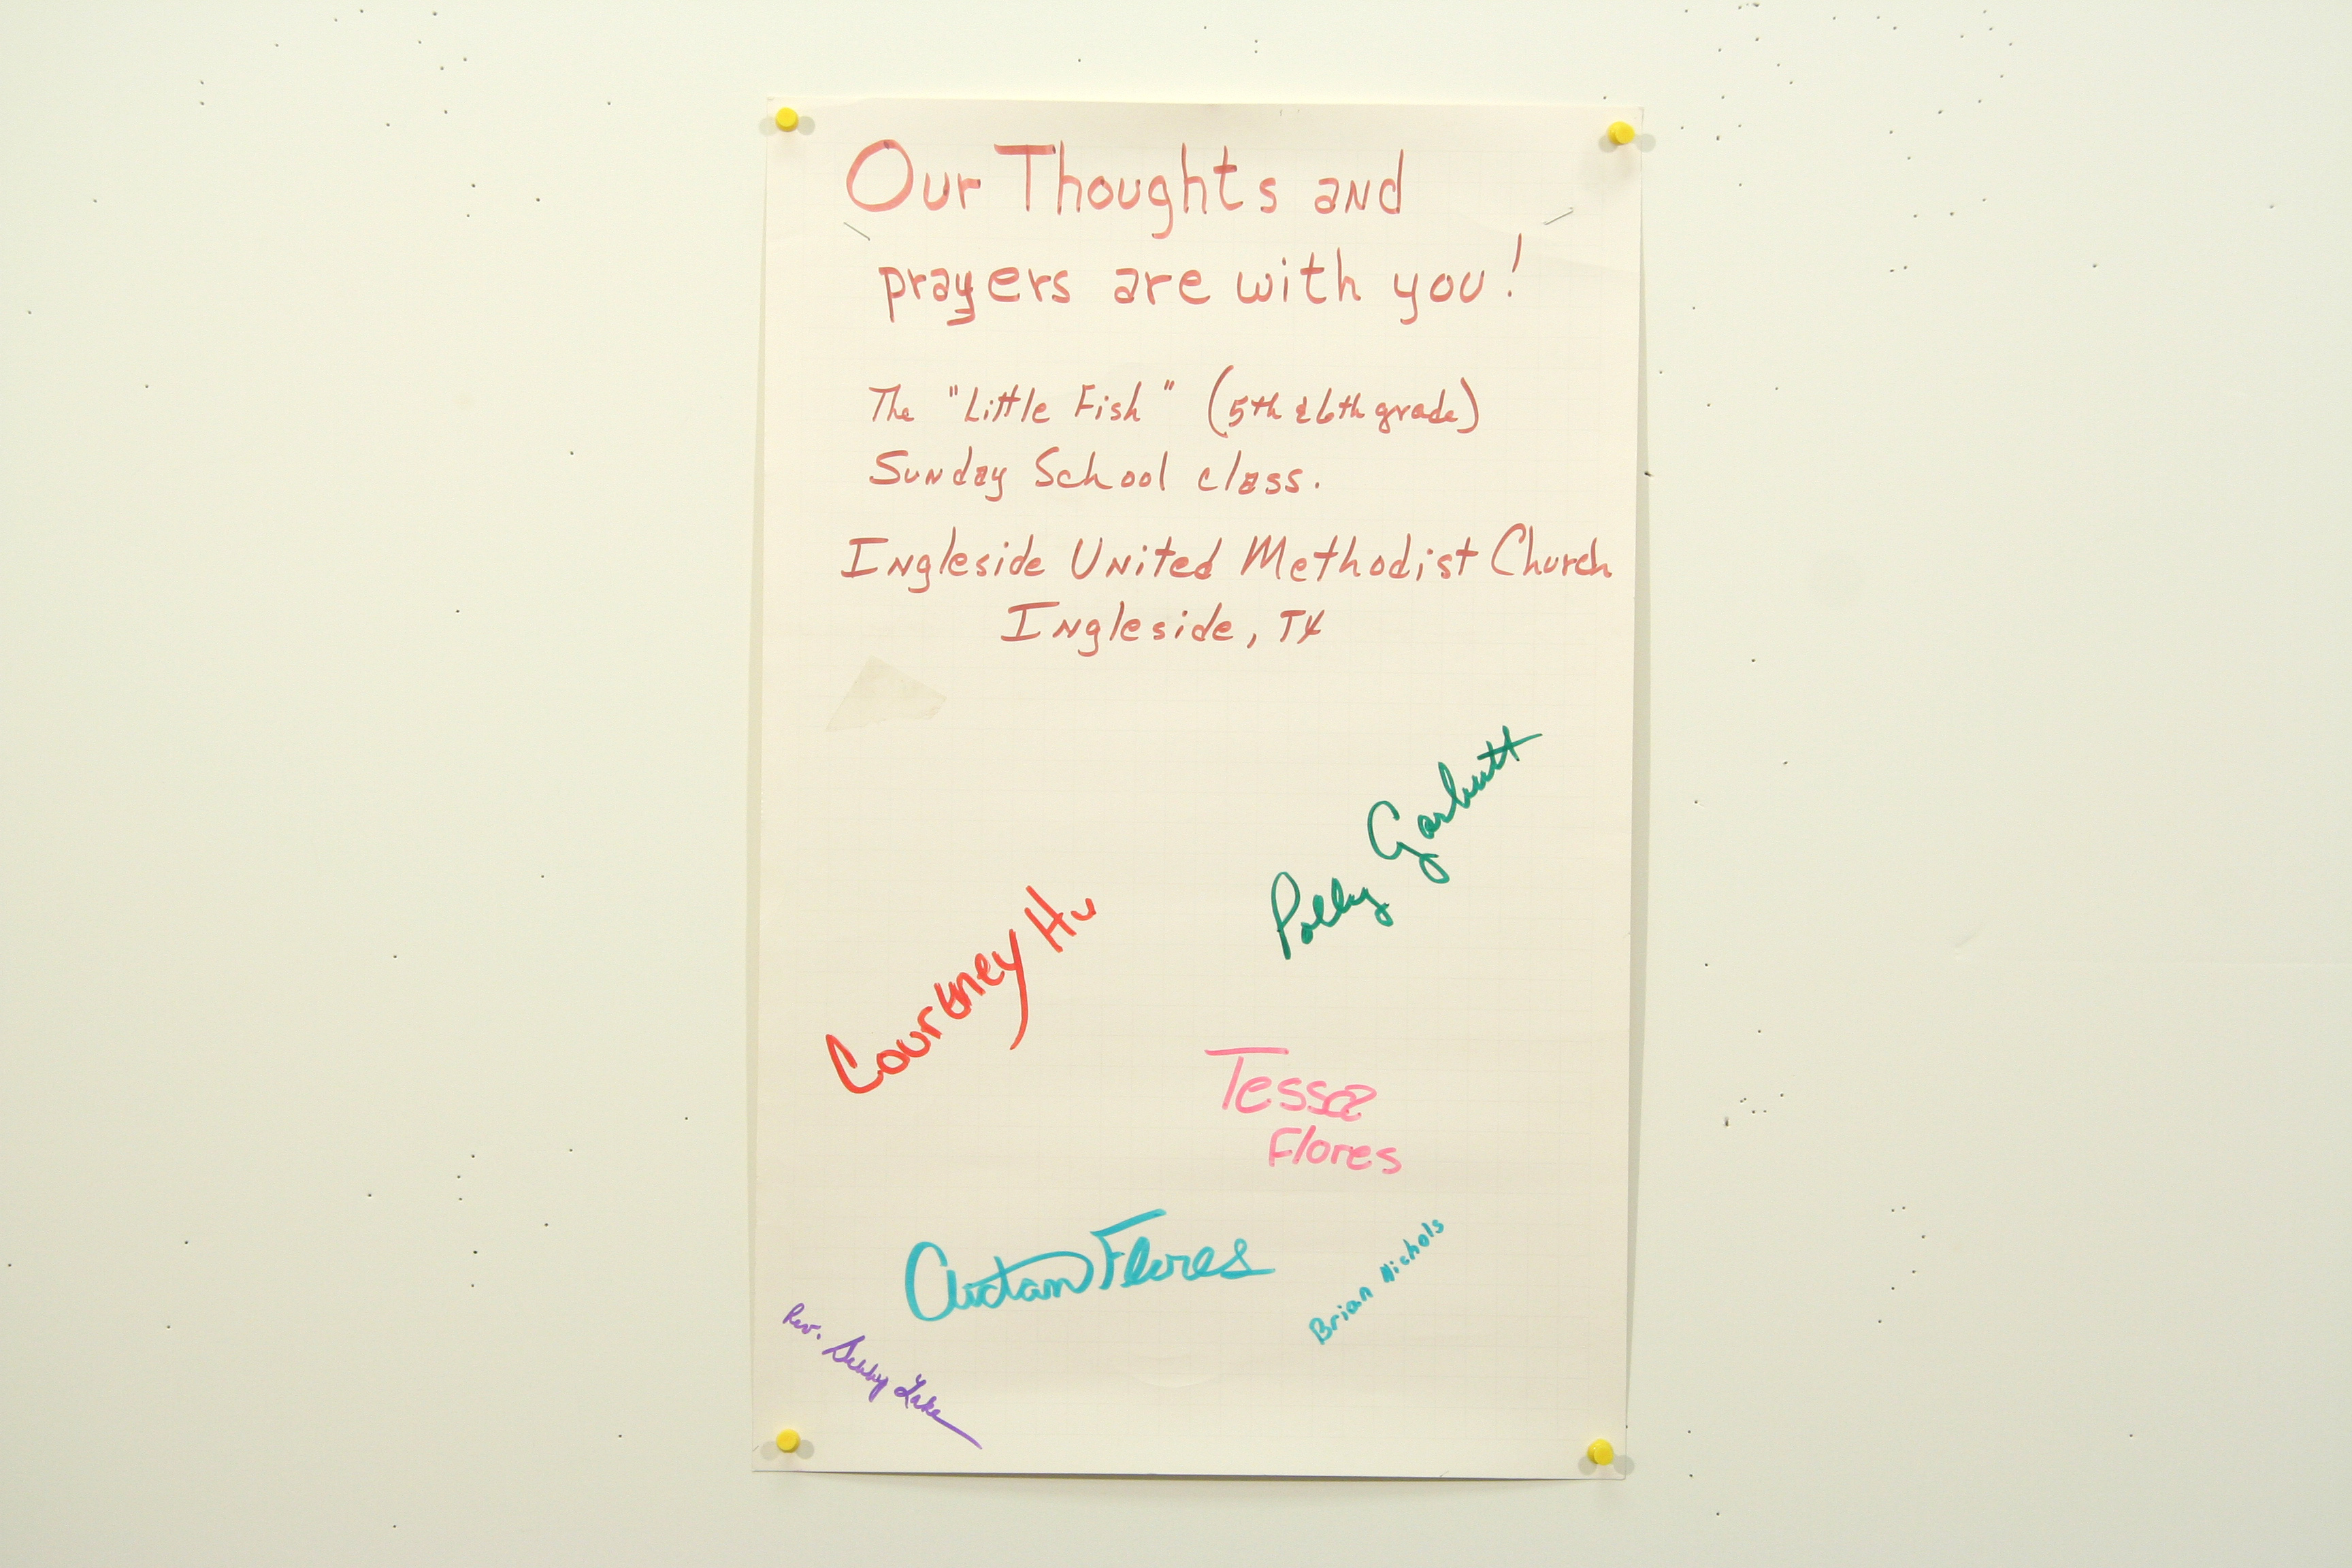 Our Thoughts and
prayers are with you!
The "Little Fish" (5th & 6th grade)
Sunday School class.
Ingleside United Methodist Church
Ingleside, TX
Polly Garbutt
Courtney Hu
Tessa
Flores
Flores
Brian Nichols
Rev. Lake